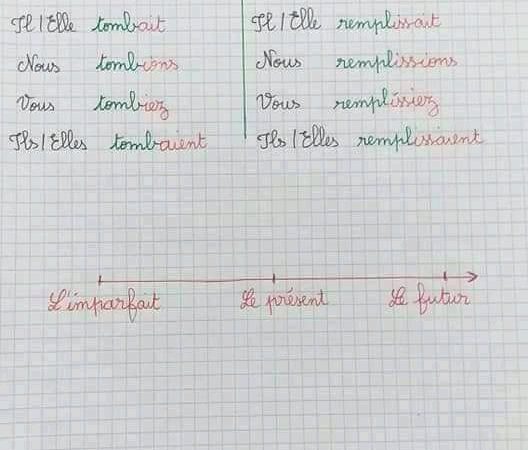 Il/Elle tombait Il/Elle remplissait
Nous tombions Nous remplissions
Vous tombiez Vous remplissiez
Ils/Elles tombaient Ils/Elles remplissaient
L'imparfait Le présent Le futur